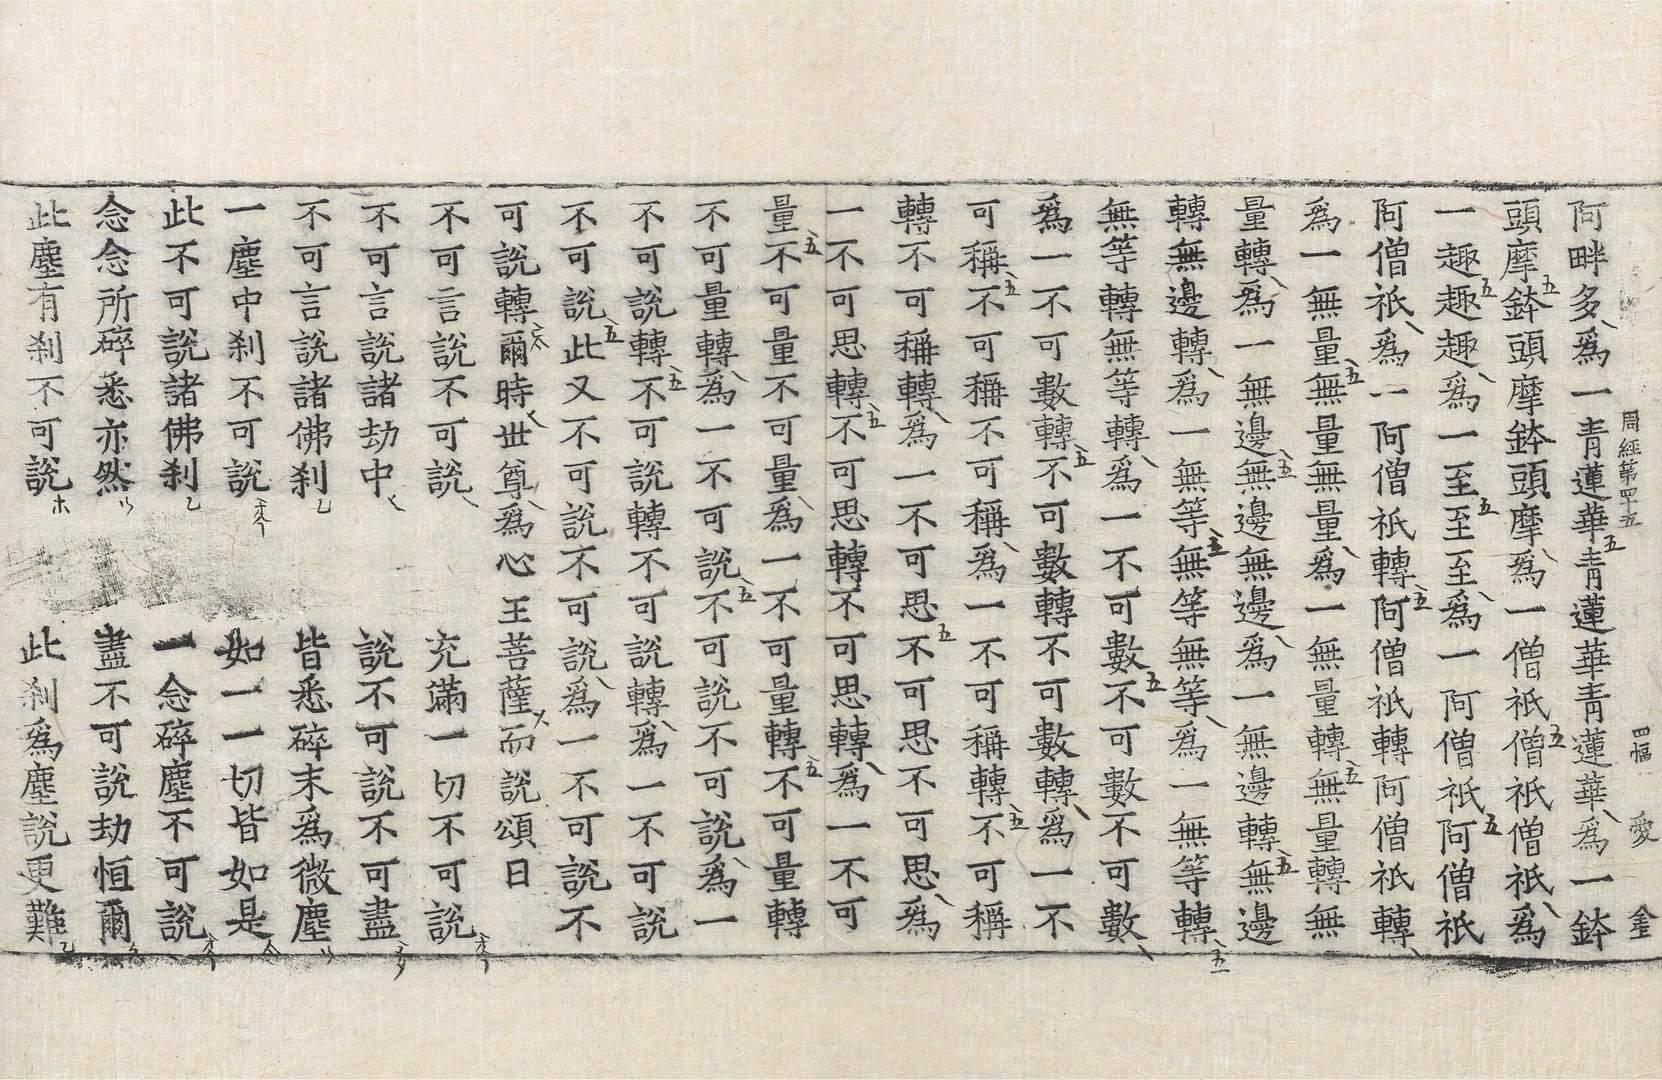 周經第四十五 四幅 愛
阿畔多爲一青蓮華青蓮華青蓮華爲一鉢
頭摩鉢頭摩鉢頭摩爲一僧祇僧祇僧祇爲
一趣趣趣爲一至至至爲一阿僧祇阿僧祇
阿僧祇爲一阿僧祇轉阿僧祇轉阿僧祇轉
爲一無量無量無量爲一無量轉無量轉無
量轉爲一無邊無邊無邊爲一無邊轉無邊
轉無邊轉爲一無等無等無等爲一無等轉
無等轉無等轉爲一不可數不可數不可數
爲一不可數轉不可數轉不可數轉爲一不
可稱不可稱不可稱爲一不可稱轉不可稱
轉不可稱轉爲一不可思不可思不可思爲
一不可思轉不可思轉不可思轉爲一不可
量不可量不可量爲一不可量轉不可量轉
不可量轉爲一不可說不可說不可說爲一
不可說轉不可說轉不可說轉爲一不可說
不可說此又不可說不可說爲一不可說不
可說轉爾時世尊爲心王菩薩而說頌曰
不可言說不可說 充滿一切不可說
不可言說諸劫中 說不可說不可盡
不可言說諸佛刹 皆悉碎末爲微塵
一塵中刹不可說 如一一切皆如是
此不可說諸佛刹 一念碎塵不可說
念念所碎悉亦然 盡不可說劫恒爾
此塵有刹不可說 此刹爲塵說更難